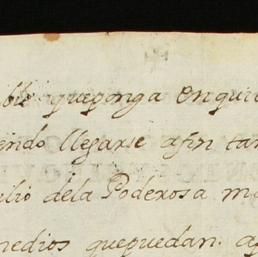 ble que ponga en quie
endo llegarse a fin tan
ilio dela Poderosa ma
medios que puedan. a